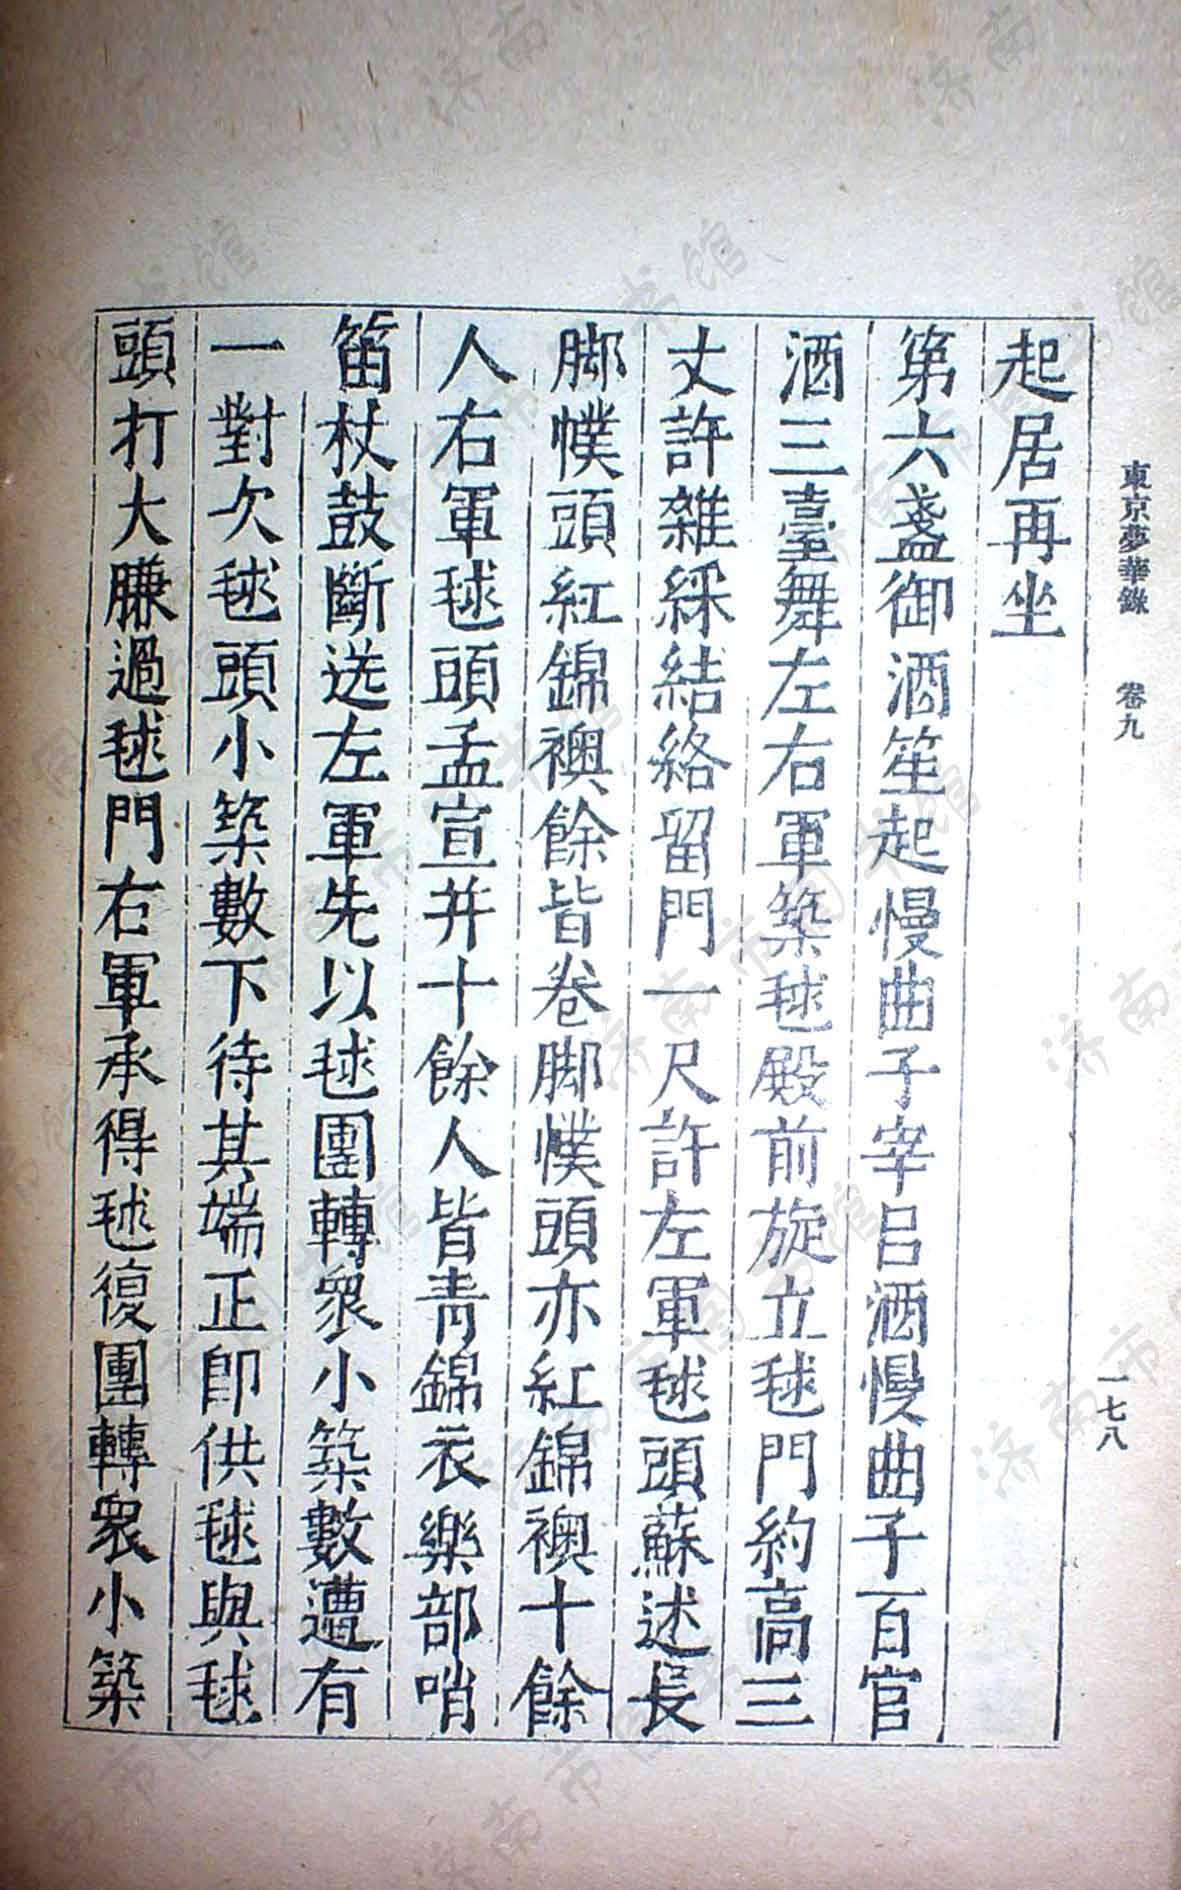 東京夢華錄　卷九　一七八
起居再坐
第六盞御酒笙起慢曲子宰吕酒慢曲子百官
酒三臺舞左右軍築毬殿前旋立毬門約高三
丈許雜綵結絡留門一尺許左軍毬頭蘇述長
脚幞頭紅錦襖餘皆卷脚幞頭亦紅錦襖十餘
人右軍毬頭孟宣并十餘人皆青錦衣樂部哨
笛杖鼓斷送左軍先以毬團轉衆小築數遭有
一對次毬頭小築數下待其端正即供毬與毬
頭打大㬠過毬門右軍承得毬復團轉衆小築